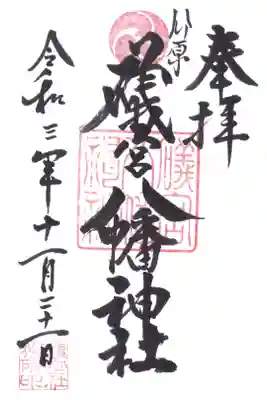 奉拝
竹原
礒宮八幡神社
令和三年十一月二十一日